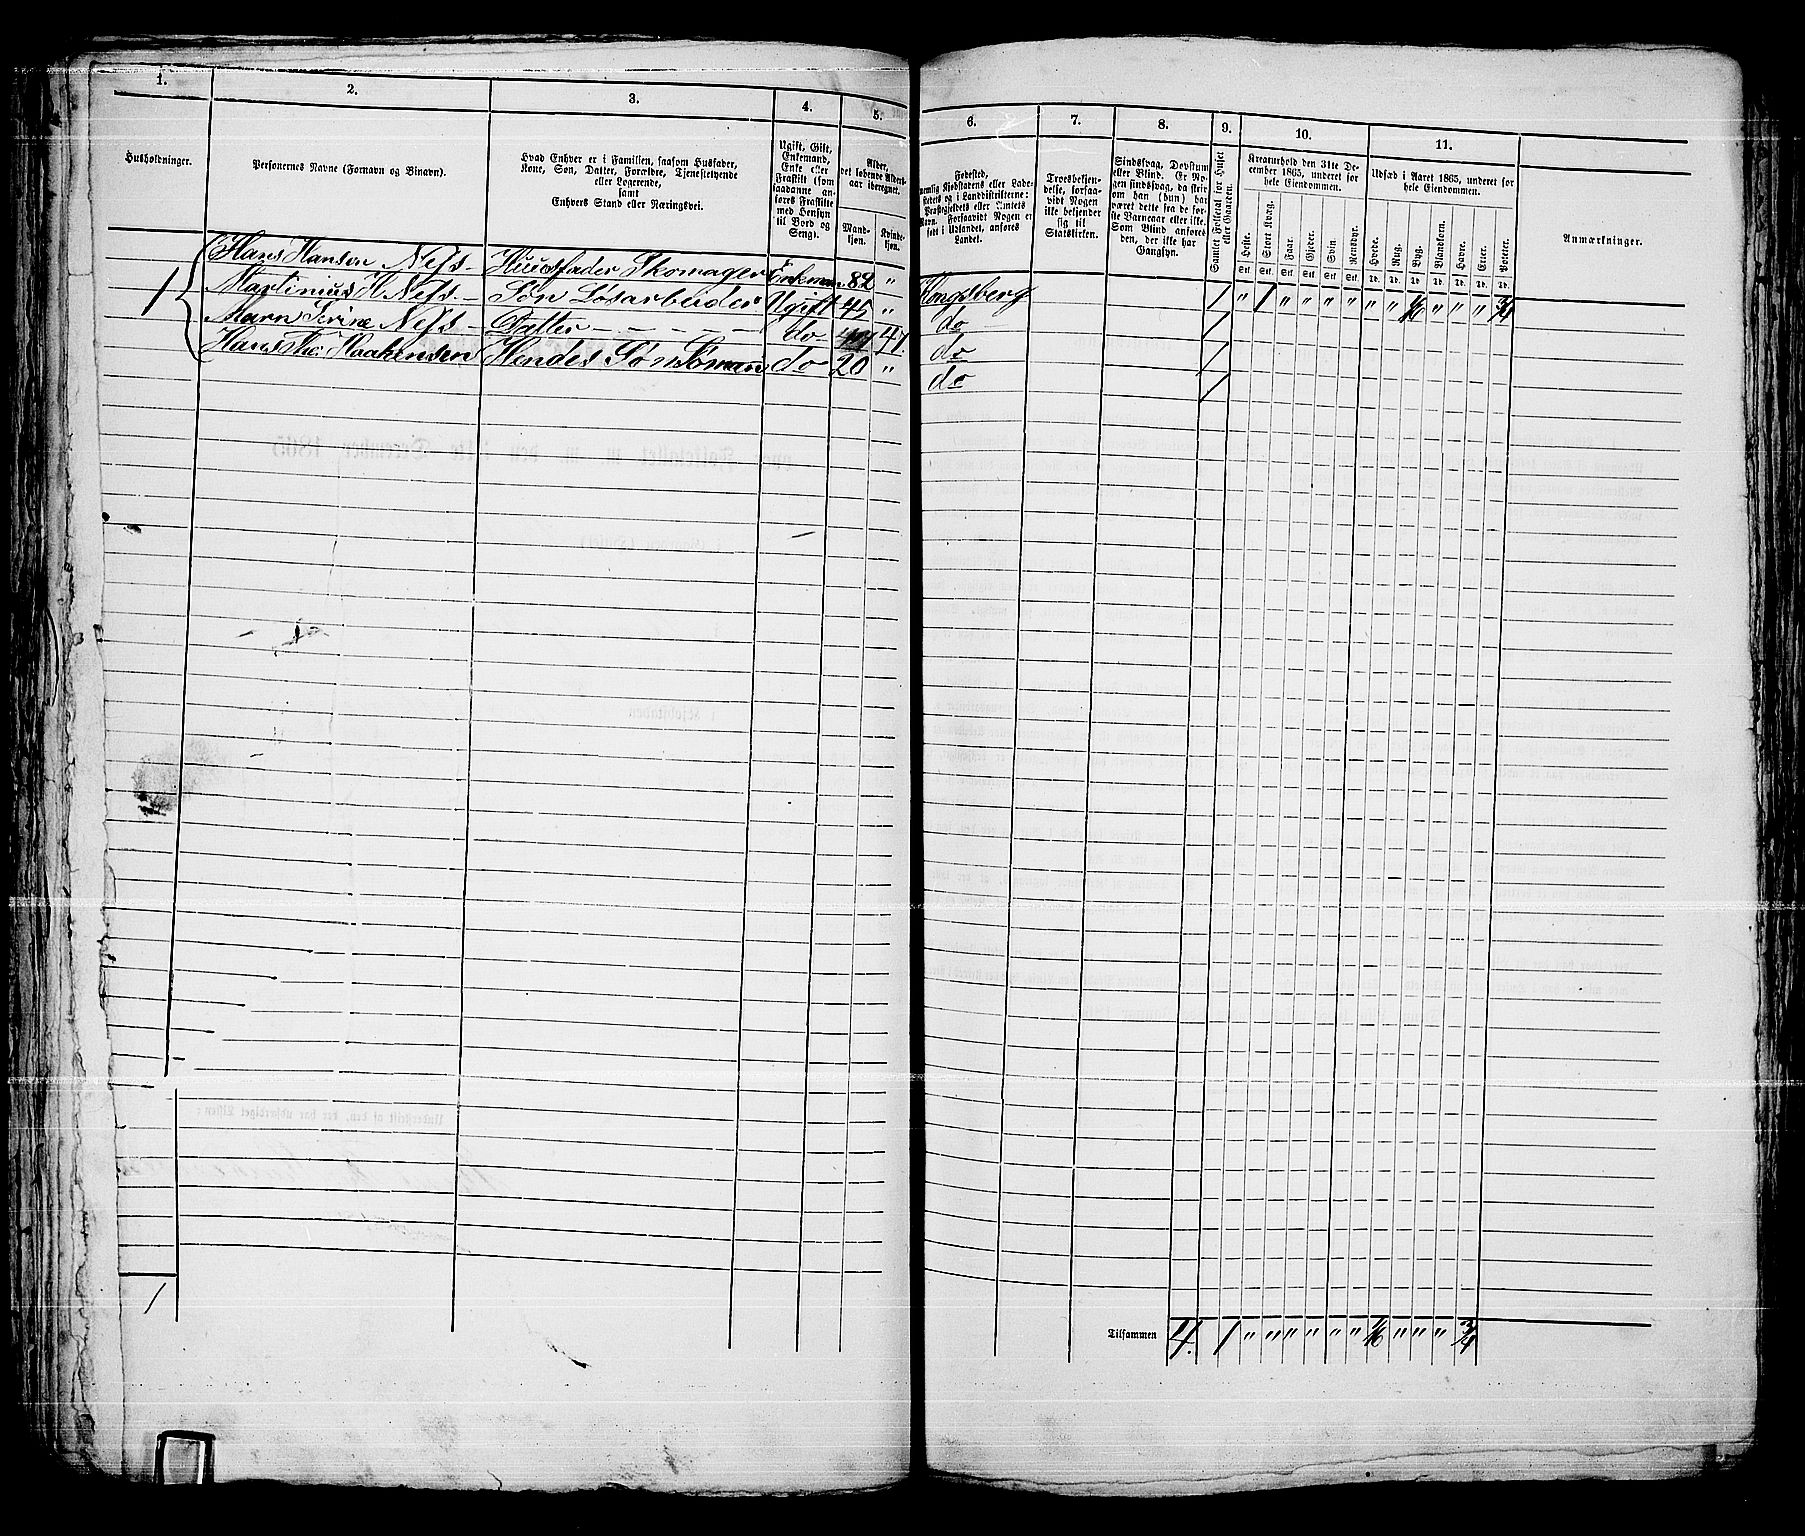 1. 2. 3. 4. 5. 6. 7. 8. 9. 10. 11.
Husholdninger.
Personernes Navne (Fornavn og Binavn).
Hvad Enhver er i Familien, saasom Husfader,
Kone, Søn, Datter, Forældre, Tjenestetyende
eller Logerende,
samt
Enhvers Stand eller Næringsvei.
Ugift, Gift,
Enkemand,
Enke eller
Fraskilt (som
saadanne an-
føres Fraskilte
med Hensyn
til Bord og
Seng).
Alder,
det løbende Alders-
aar iberegnet.
Mand-
kjøn.
Kvinde-
kjøn.
Fødested,
nemlig Kjøbstadens eller Lade-
stedets og i Landdistrikterne:
Præstegjeldets eller Amtets
Navn. Forsaavidt Nogen er
født i Udlandet, anføres
Landet.
Troesbekjen-
delse, forsaa-
vidt Nogen
ikke bekjender
sig til
Statskirken.
Sindssvag, Døvstum
eller Blind. Er No-
gen sindssvag, da skriv
om han (hun) har
været dette fra de før-
ste Barneaar eller ikke.
Som Blind anføres
den, der ikke har
Gangsyn.
Samlet Folketal for Huset
eller Gaarden.
Kreaturhold den 31te De-
cember 1865, underet for
hele Eiendommen.
Heste. Stort Kvæg. Faar. Gjeder. Svin. Rensdyr.
Stk. Stk. Stk. Stk. Stk. Stk.
Udsæd i Aaret 1865, underet for
hele Eiendommen.
Hvede. Rug. Byg. Blandkorn. Havre. Erter. Poteter.
Td. Td. Td. Td. Td. Td. Td.
Anmærkninger.
1 Hans Hansen Ness - Huusfader Skomager Enkem. 82 " Kongsberg / " 1 " " " " " " 1/16 " " " 3/4
Martinius H Ness - Søn Løsarbeider Ugift 45 " do /
Maren Serine Ness - Datter - - - - do 47. do /
Hans Haakensen Hendes Søn Sømand do 20 " do /
/
Tilsammen 4. 1 " " " " " " 1/16 " " " 3/4